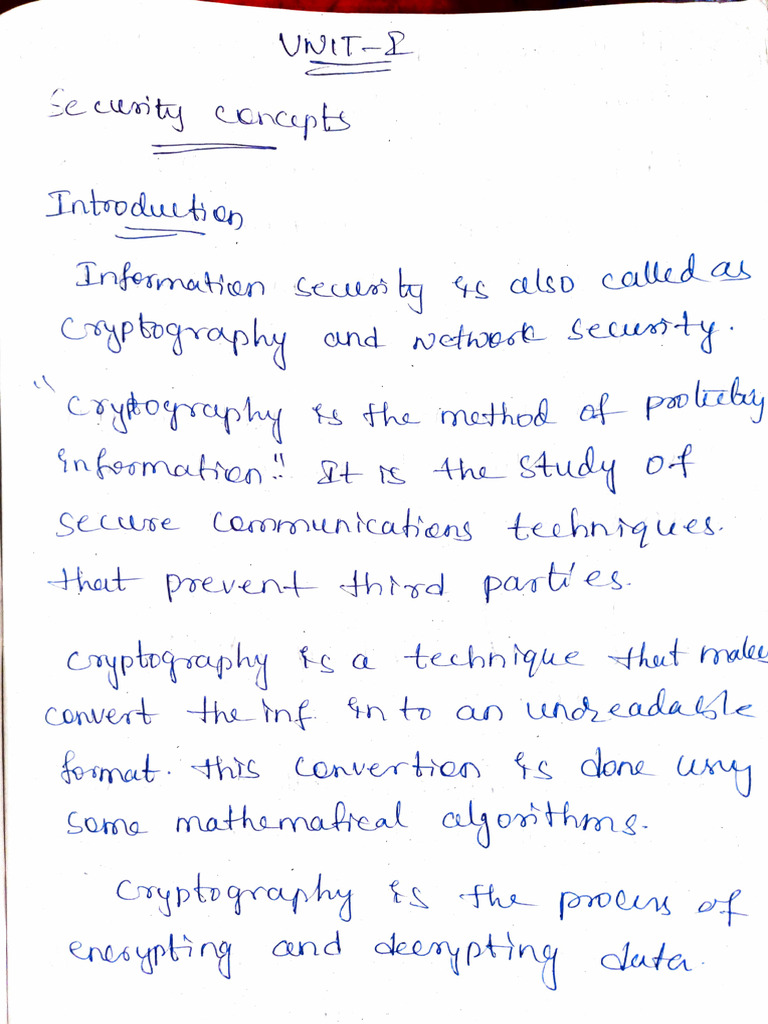 UNIT-I
Security concepts
Introduction
Information security is also called as
cryptography and network security.
"cryptography is the method of protecting
information." It is the study of
secure communications techniques.
that prevent third parties.
cryptography is a technique that makes
convert the inf. in to an undreadable
format. this convertion is done using
some mathematical algorithms.
cryptography is the process of
encrypting and decrypting data.